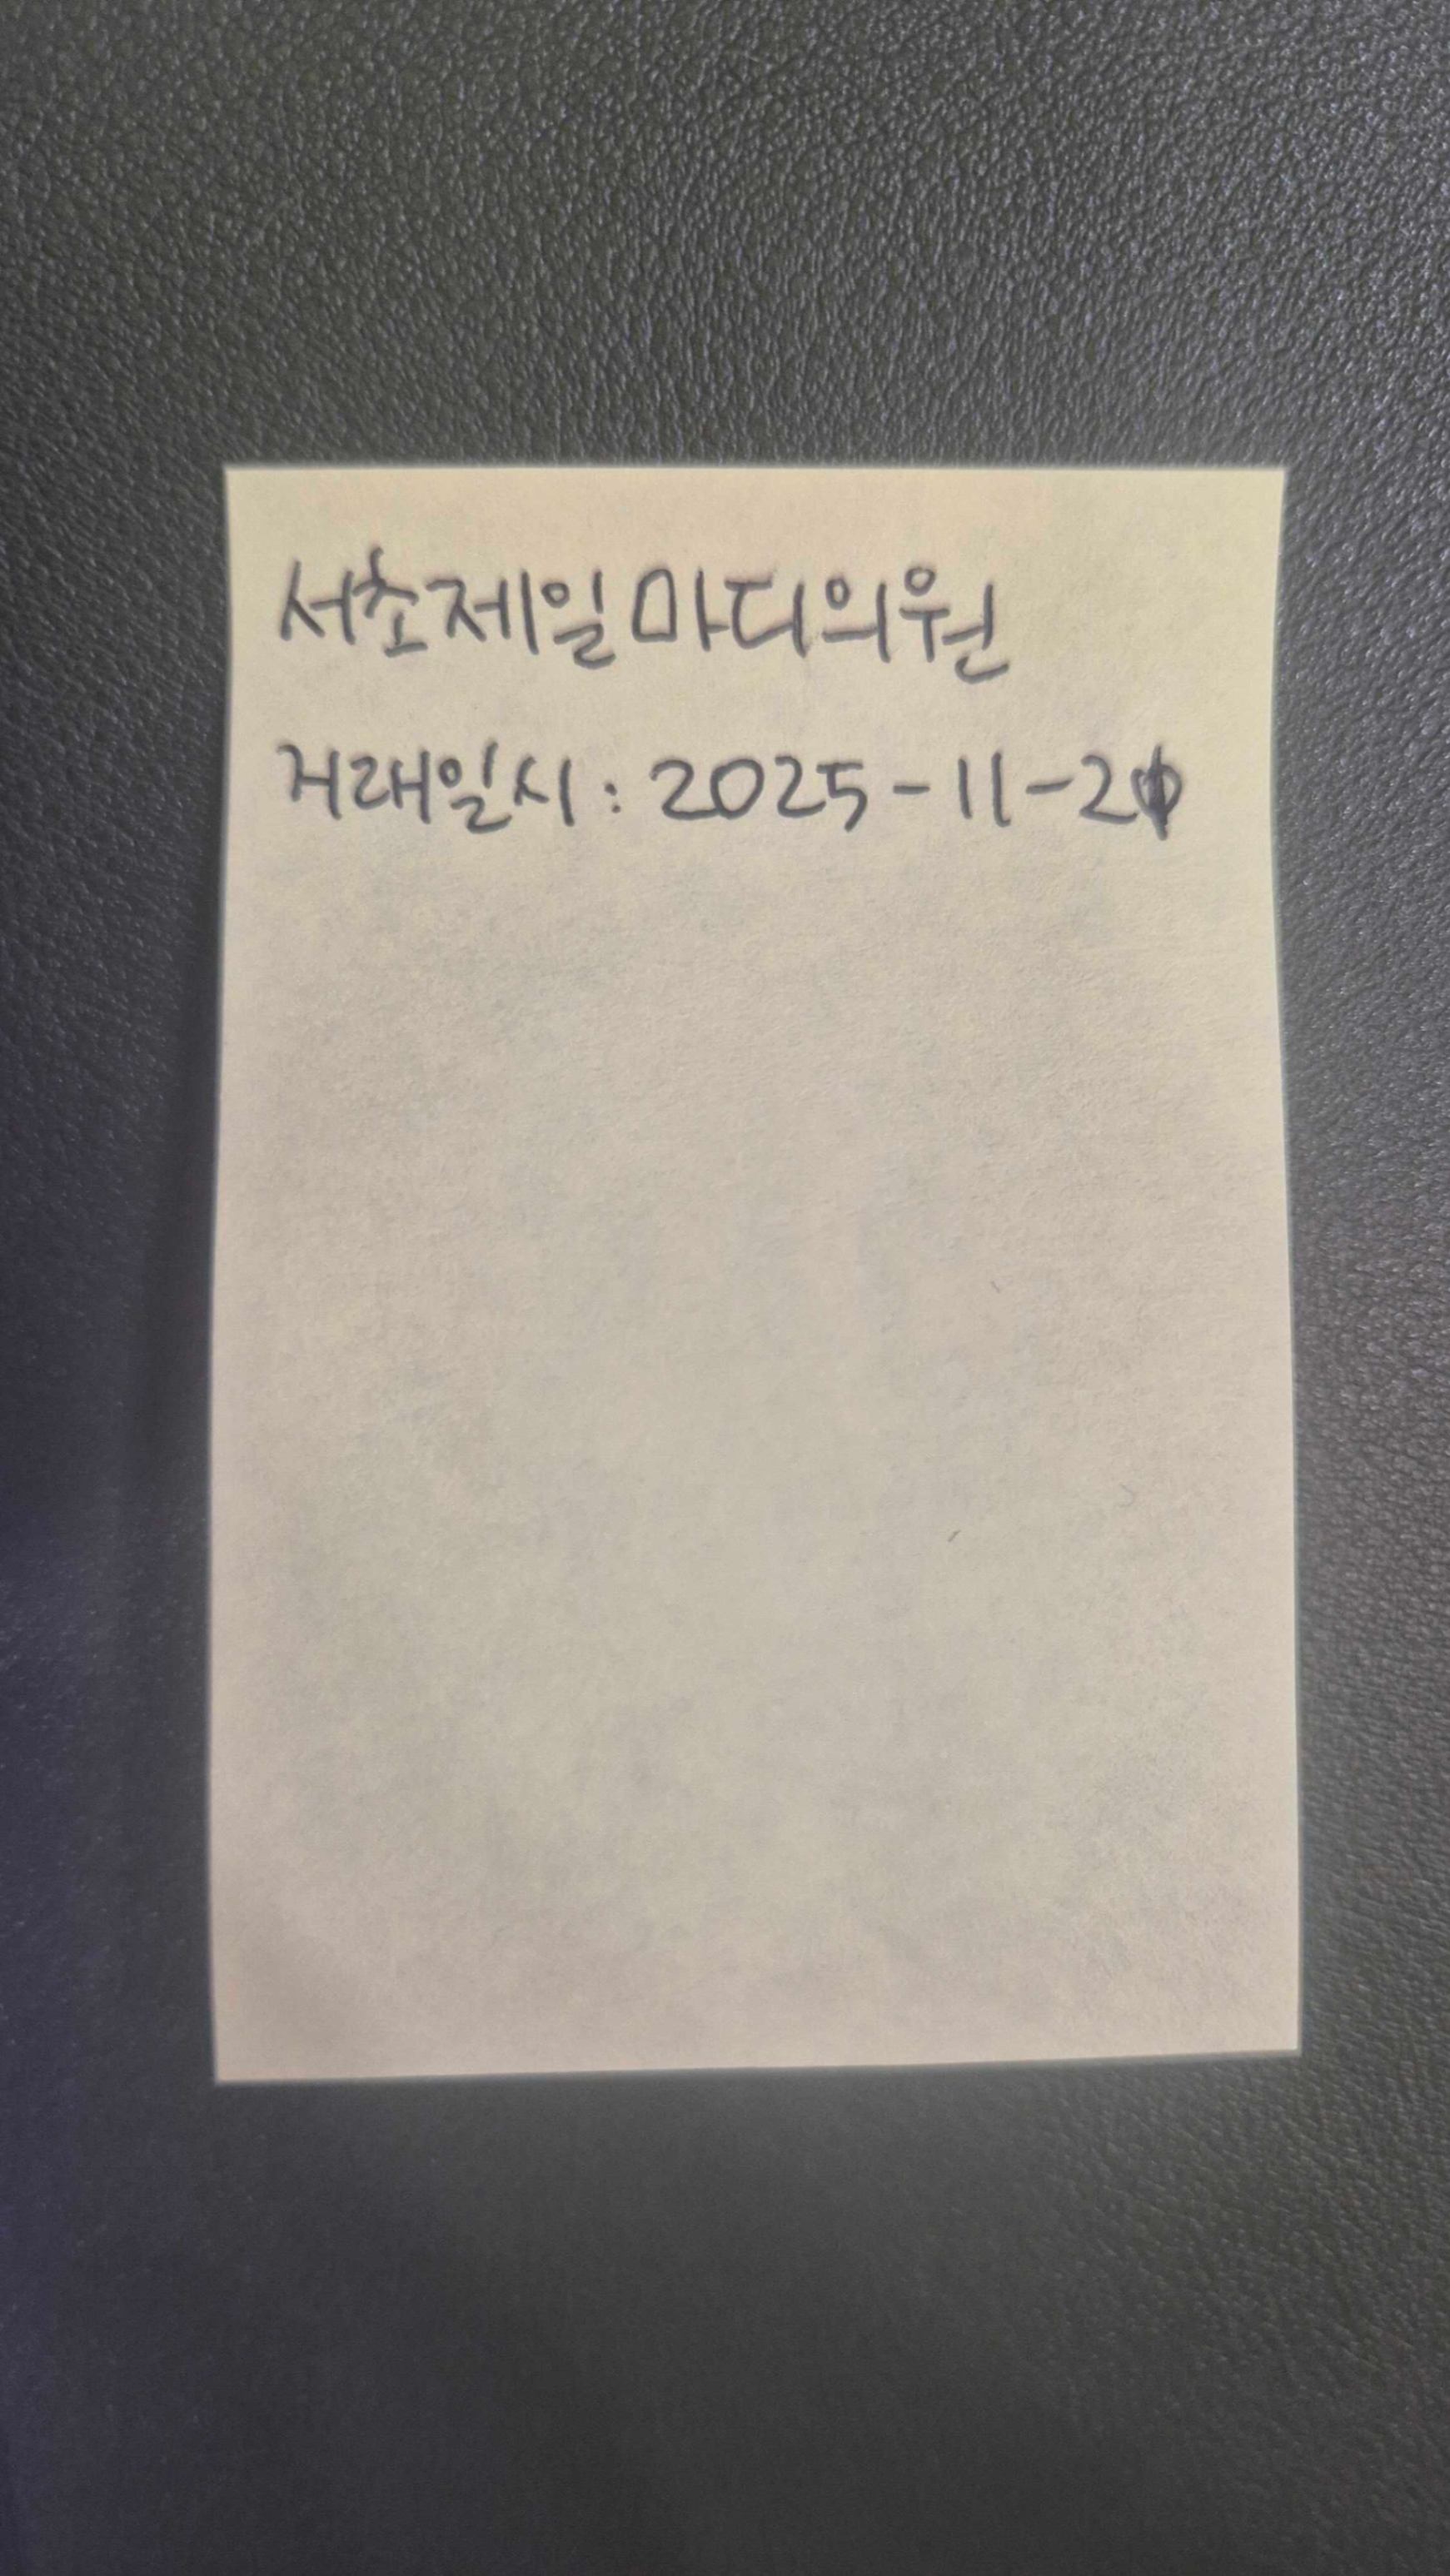 서초제일마디의원
거래일시: 2025-11-21